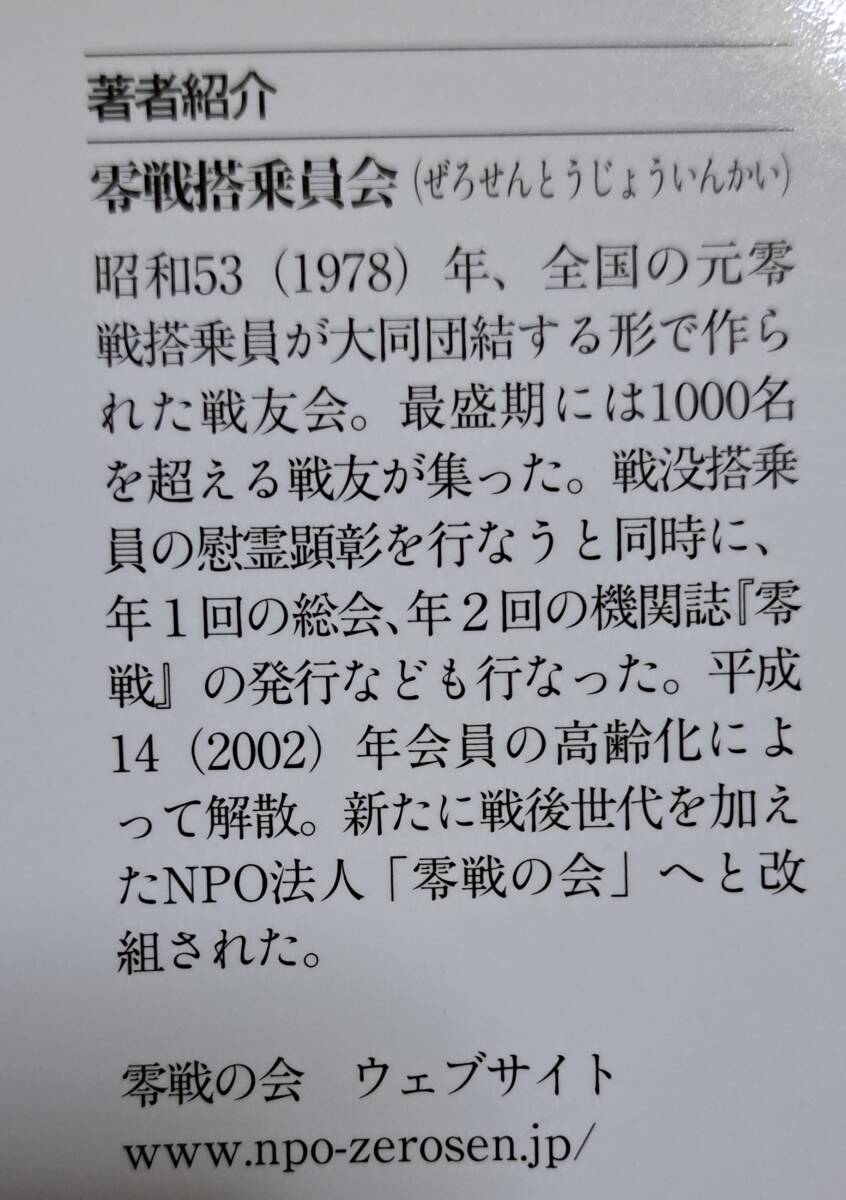 著者紹介
零戦搭乗員会（ぜろせんとうじょういんかい）
昭和53（1978）年、全国の元零
戦搭乗員が大同団結する形で作ら
れた戦友会。最盛期には1000名
を超える戦友が集った。戦没搭乗
員の慰霊顕彰を行なうと同時に、
年１回の総会、年２回の機関誌『零
戦』の発行なども行なった。平成
14（2002）年会員の高齢化によ
って解散。新たに戦後世代を加え
たNPO法人「零戦の会」へと改
組された。
零戦の会　ウェブサイト
www.npo-zerosen.jp/